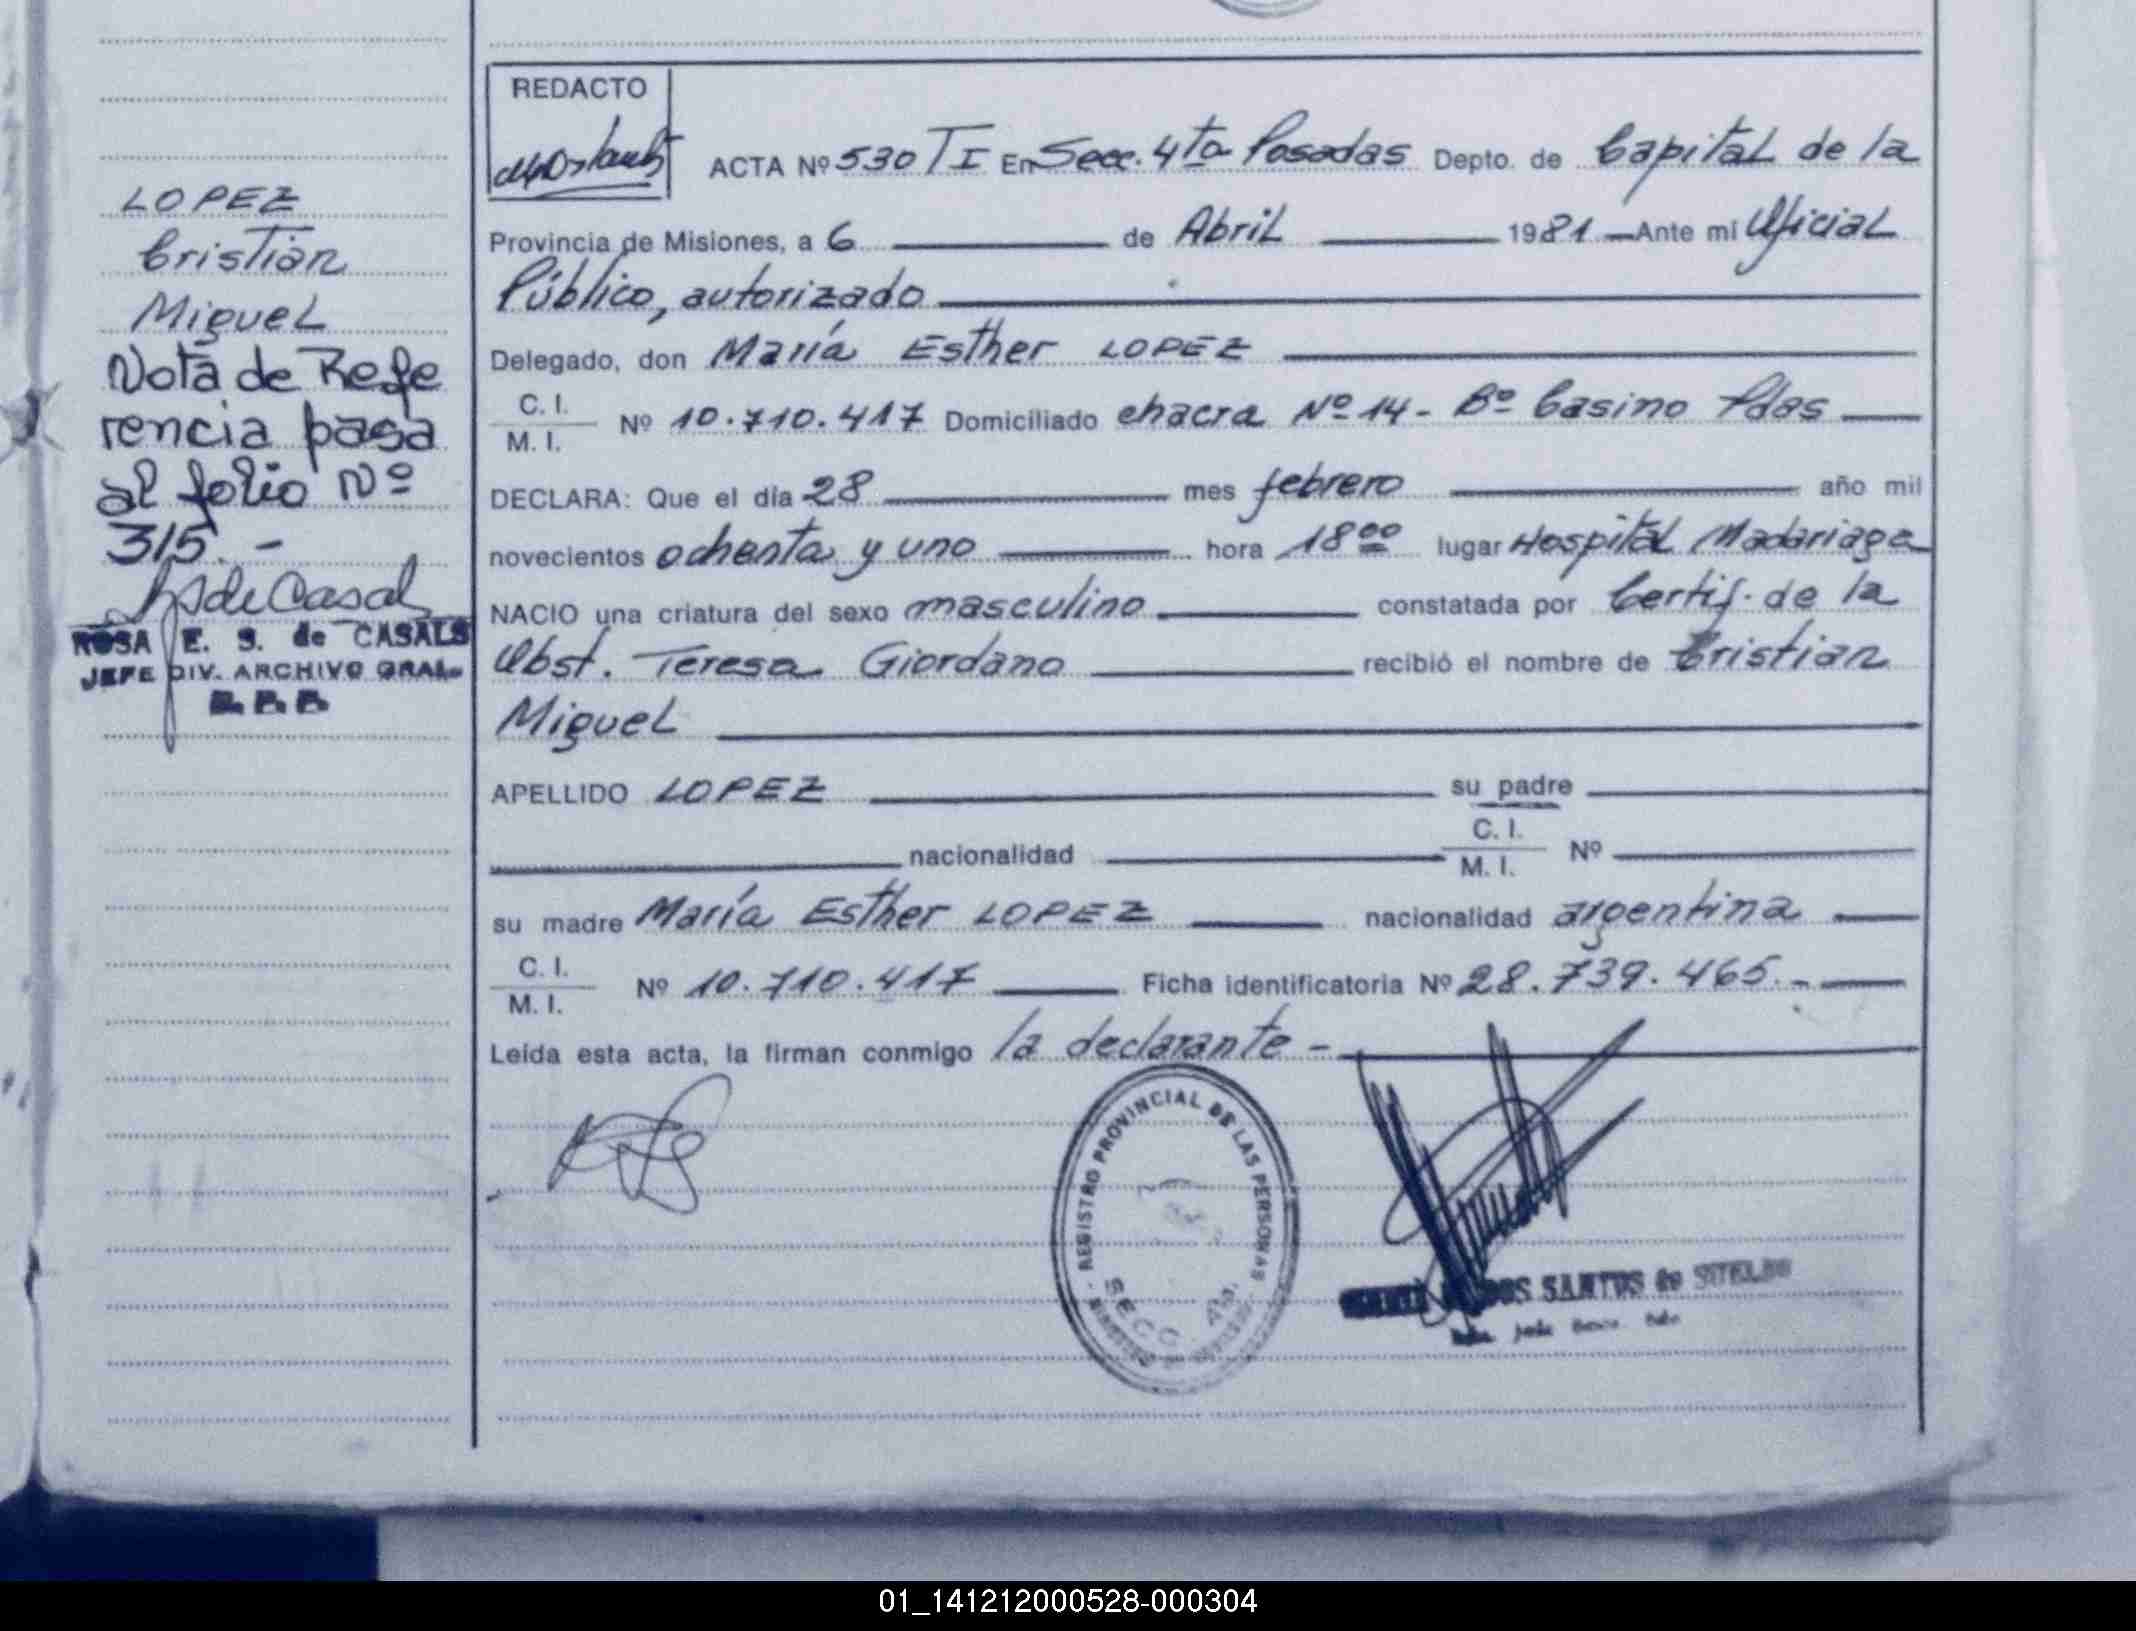 LOPEZ
Cristian
Miguel
Nota de Refe
rencia pasa
al folio Nº
315.-
ROSA E. S. de CASALS
JEFE DIV. ARCHIVO GRAL.
REDACTO
ACTA Nº 530 TI En Secc. 4ta Posadas Depto. de Capital de la
Provincia de Misiones, a 6 de Abril 1981 Ante mi Oficial
Público, autorizado
Delegado, don María Esther LOPEZ
C. I.
M. I.
Nº 10.710.417 Domiciliado chacra Nº 14- Bº Casino Pdas
DECLARA: Que el día 28 mes febrero año mil
novecientos ochenta y uno hora 18 00 lugar Hospital Madariaga
NACIO una criatura del sexo masculino constatada por Certif. de la
Obst. Teresa Giordano recibió el nombre de Cristian
Miguel
APELLIDO LOPEZ su padre
nacionalidad C. I.
M. I. Nº
su madre María Esther LOPEZ nacionalidad argentina
C. I.
M. I.
Nº 10.710.417 Ficha identificatoria Nº 28.739.465.-
Leída esta acta, la firman conmigo la declarante -
REGISTRO PROVINCIAL DE LAS PERSONAS
SECC. 4ta.
DOS SANTOS de
01_141212000528-000304